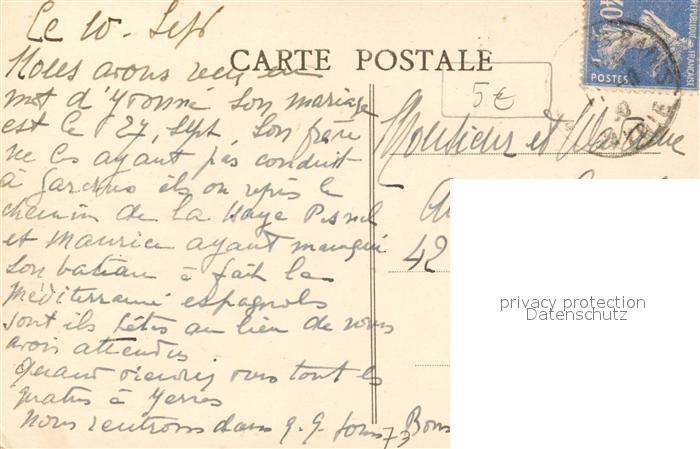 Le 10. Sept
CARTE POSTALE
5€
RÉPUBLIQUE FRANÇAISE
40
POSTES
Nous avons reçu un
mot d'Yvonne son mariage
est le 27, Sept, son frère
ne les ayant pas conduit
à ils on repris le
chemin de la Haye Pesnel
et Maurice ayant manqué
son bateau à fait la
méditerranné espagnols
sont ils bêtes au lieu de nous
avoir attendus
quand viendrez vous tout les
quatres à Yerres
nous rentrons dans q.q jours Bons
Monsieur et Madame
42
privacy protection
Datenschutz